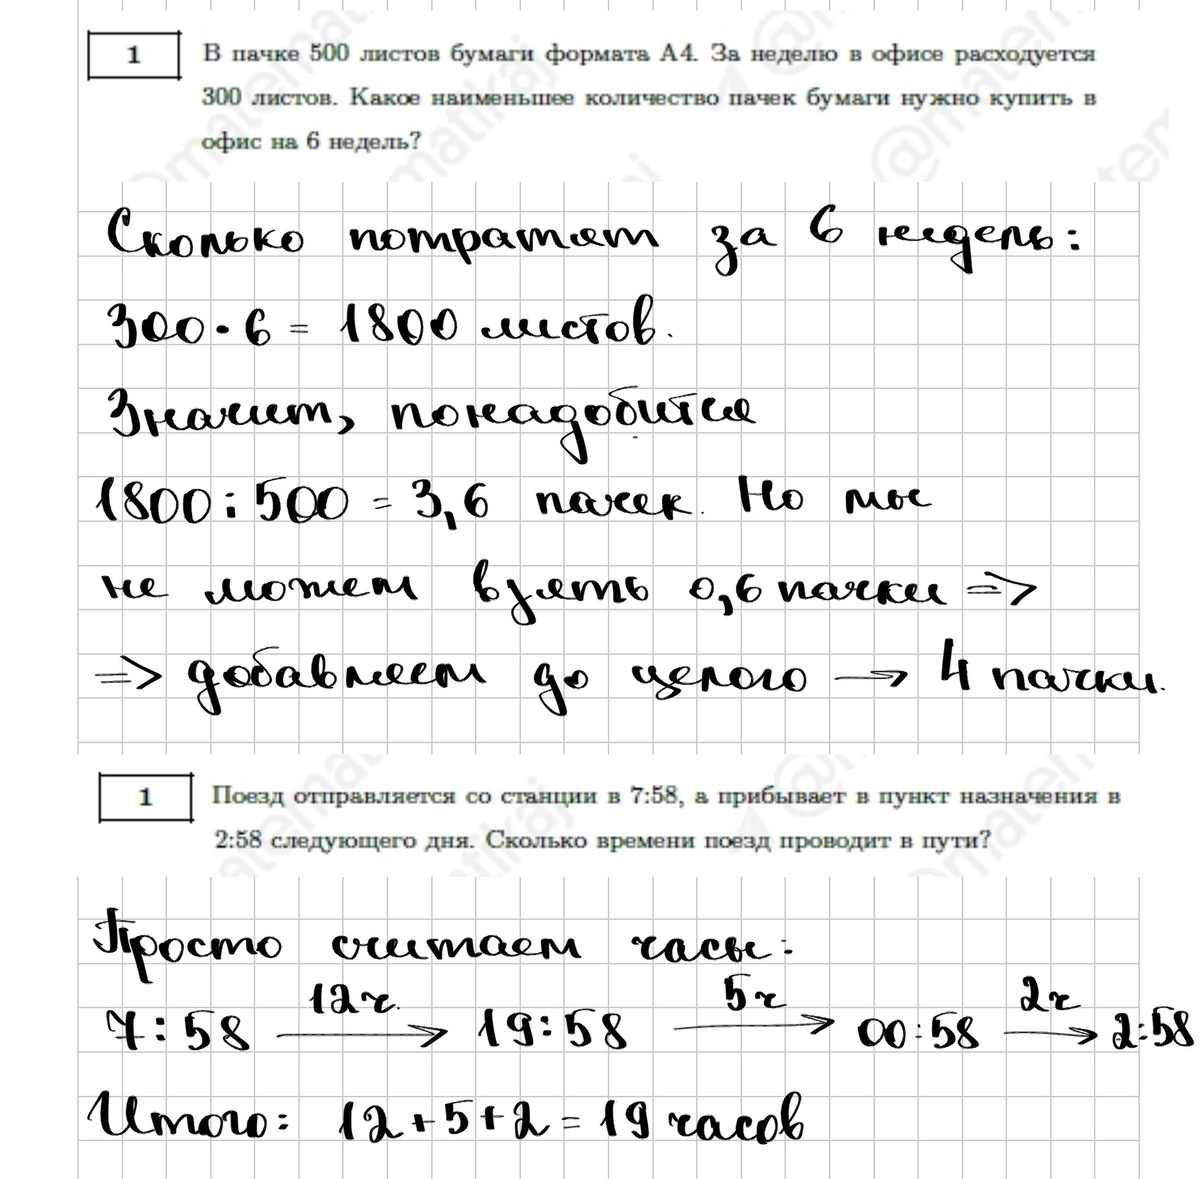 1
В пачке 500 листов бумаги формата А4. За неделю в офисе расходуется
300 листов. Какое наименьшее количество пачек бумаги нужно купить в
офис на 6 недель?
Сколько потратят за 6 недель:
300·6 = 1800 листов.
Значит, понадобится
1800:500 = 3,6 пачек. Но мы
не можем взять 0,6 пачки =>
=> добавляем до целого → 4 пачки.
1
Поезд отправляется со станции в 7:58, а прибывает в пункт назначения в
2:58 следующего дня. Сколько времени поезд проводит в пути?
Просто считаем часы:
12ч. 5ч 2ч
7:58 → 19:58 → 00:58 → 2:58
Итого: 12+5+2 = 19 часов